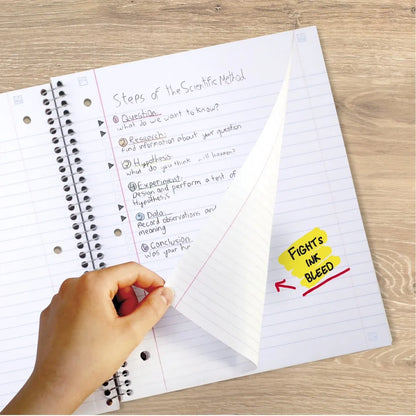 Steps of the Scientific Method
① Question
What do we want to know?
② Research:
Find information about your question
③ Hypothesis
What do you think will happen?
④ Experiment:
Design and perform a test of
Hypothesis
⑤ Data
Record observations and
meaning
⑥ Conclusion
was your
FIGHTS
INK
BLEED